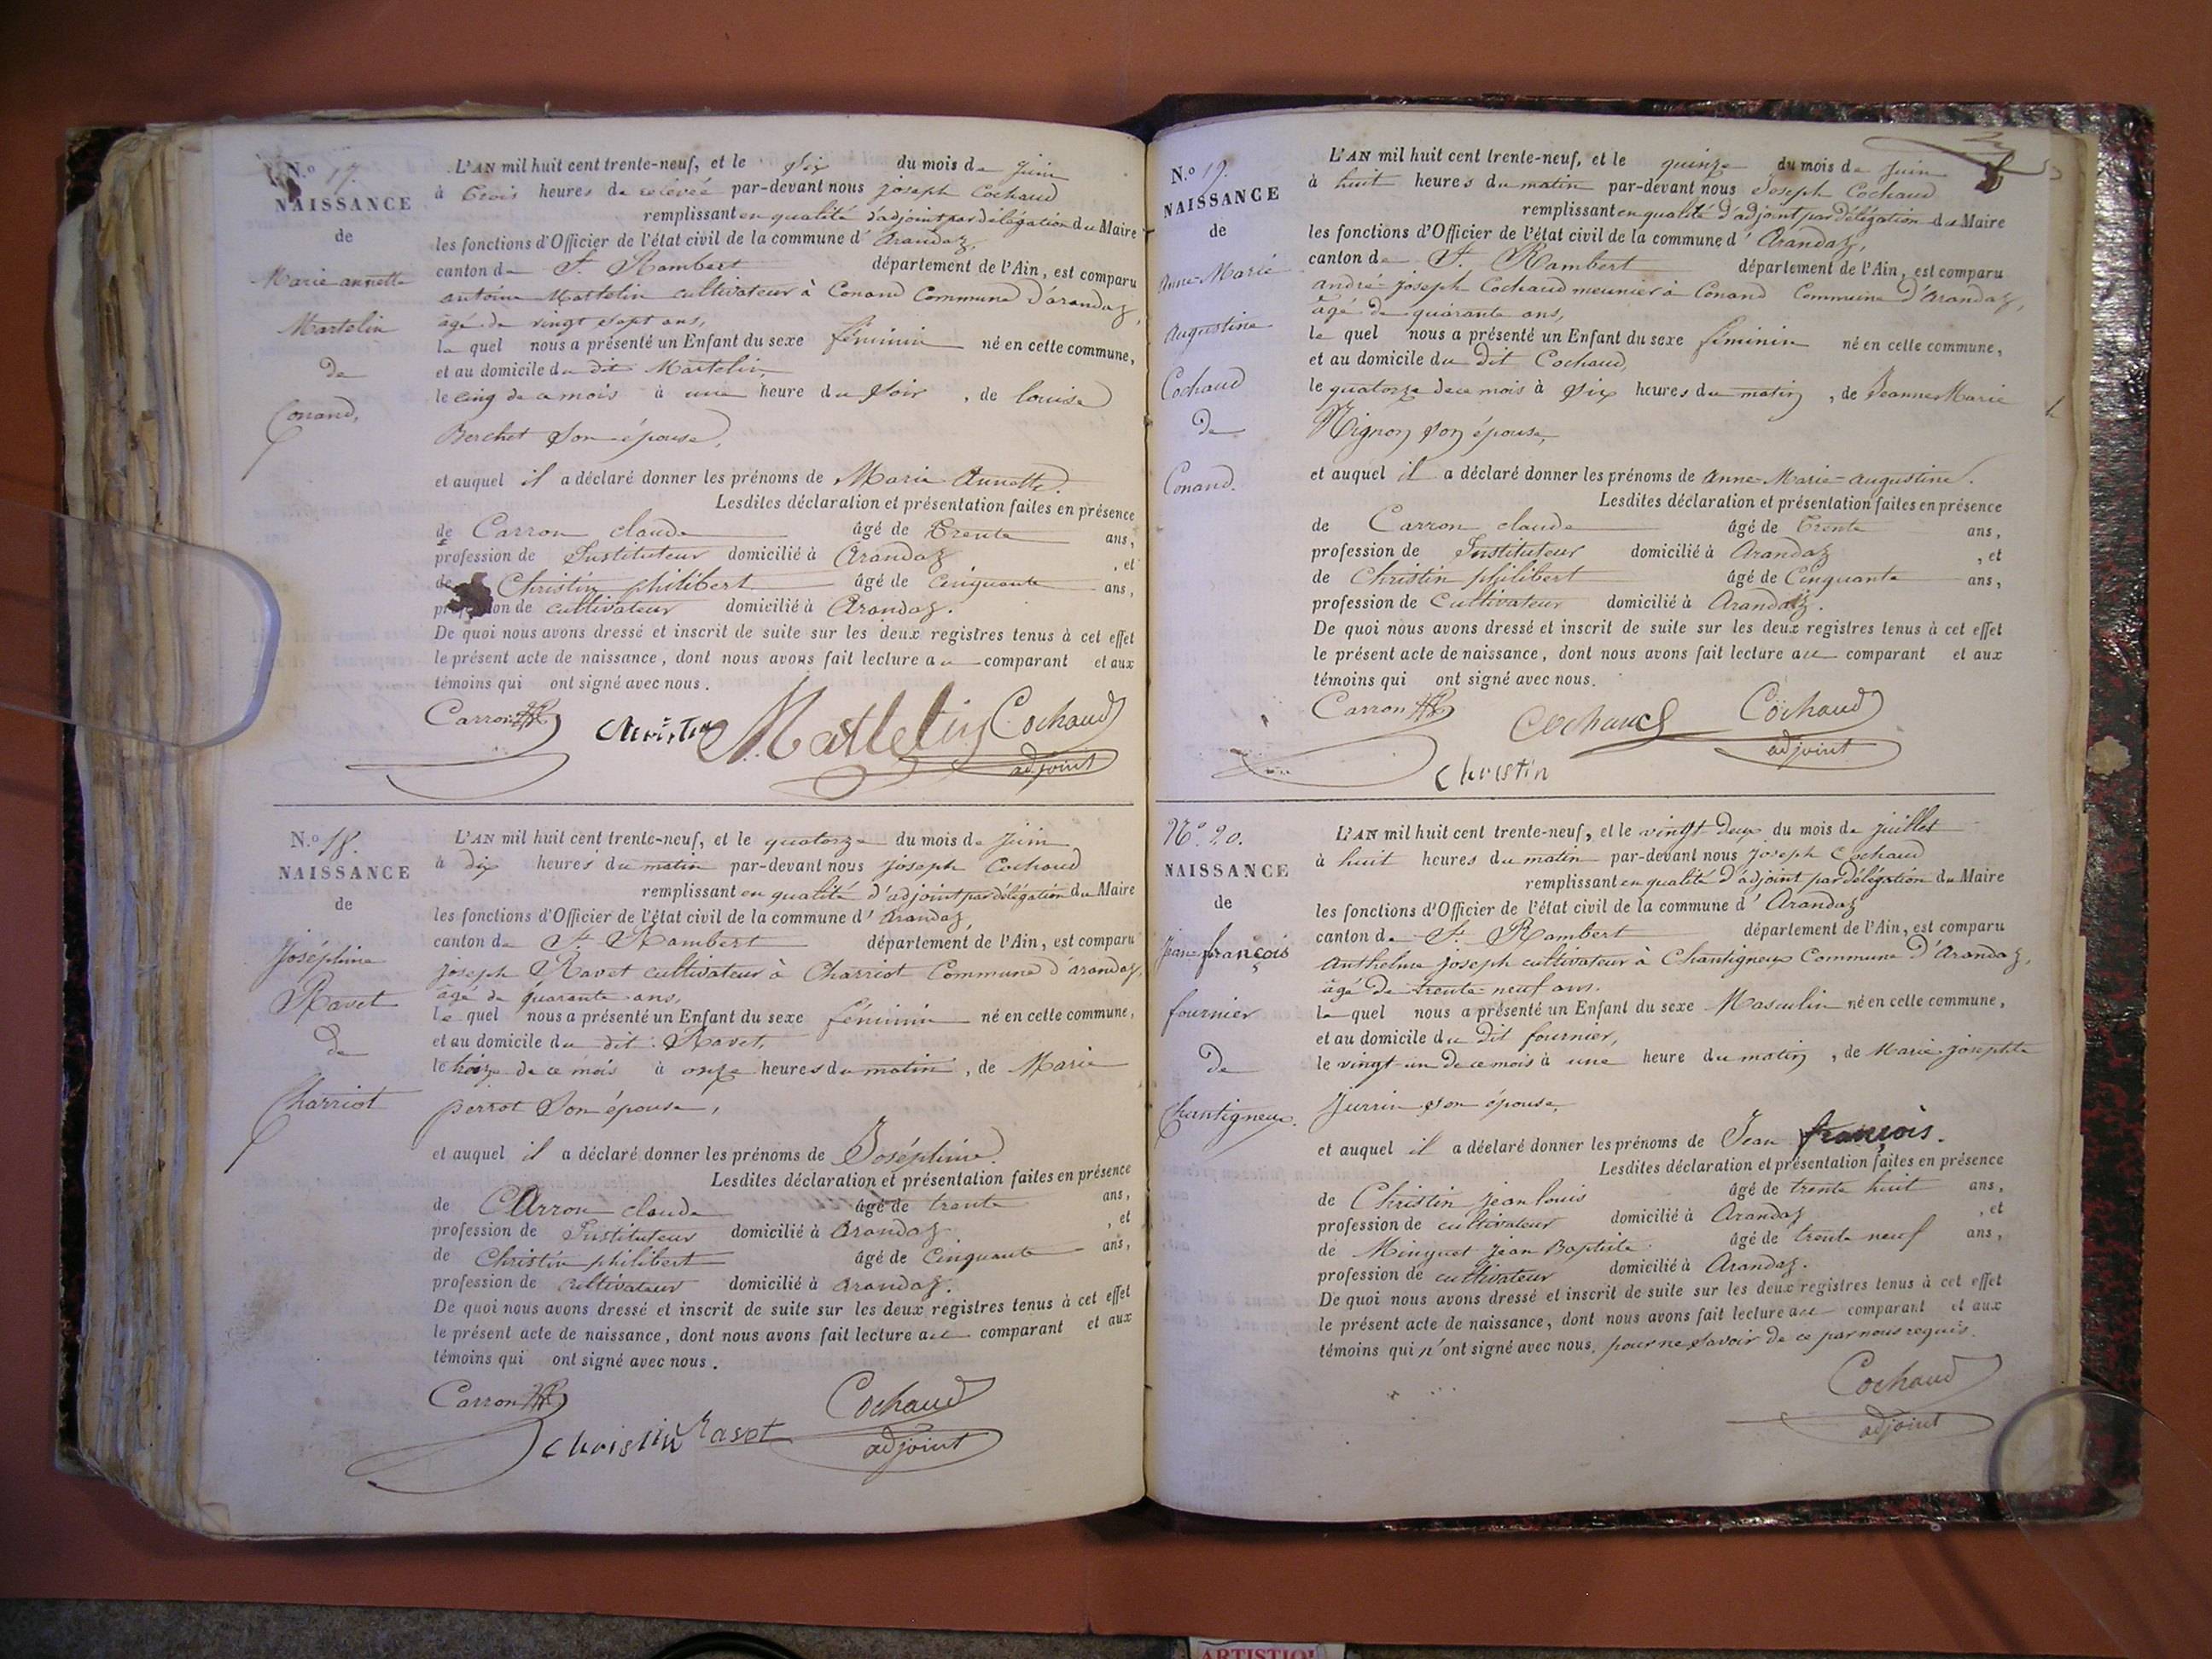 N.o 17.
NAISSANCE
de
Marie annette
Martelin
de
Conand,
L'AN mil huit cent trente-neuf, et le Six du mois de Juin
à trois heures de relevée par-devant nous joseph Cochaud
remplissant en qualité d'adjoint par délégation du Maire
les fonctions d'Officier de l'état civil de la commune d' Arandaz,
canton de St. Rambert département de l'Ain, est comparu
antoine Martelin cultivateur à Conand Commune d'arandaz,
âgé de vingt sept ans,
le quel nous a présenté un Enfant du sexe féminin né en cette commune,
et au domicile du dit Martelin,
le cinq de ce mois à une heure du Soir , de louise
Berchet Son épouse,
et auquel il a déclaré donner les prénoms de Marie Annette.
Lesdites déclaration et présentation faites en présence
de Carron claude âgé de trente ans,
profession de Instituteur domicilié à Arandaz , et
de Christin philibert âgé de Cinquante ans,
profession de cultivateur domicilié à Arandaz.
De quoi nous avons dressé et inscrit de suite sur les deux registres tenus à cet effet
le présent acte de naissance, dont nous avons fait lecture au comparant et aux
témoins qui ont signé avec nous.
Carron Christin Matlelin Cochaud
adjoint
N.o 18.
NAISSANCE
de
Joséphine
Ravet
de
Charriot
L'AN mil huit cent trente-neuf, et le quatorze du mois de Juin
à dix heures du matin par-devant nous joseph Cochaud
remplissant en qualité d'adjoint par délégation du Maire
les fonctions d'Officier de l'état civil de la commune d' Arandaz,
canton de St. Rambert département de l'Ain, est comparu
joseph Ravet cultivateur à Charriot Commune d'arandaz,
âgé de quarante ans,
le quel nous a présenté un Enfant du sexe féminin né en cette commune,
et au domicile du dit Ravet,
le treize de ce mois à onze heures du matin , de Marie
perrot Son épouse,
et auquel il a déclaré donner les prénoms de Joséphine.
Lesdites déclaration et présentation faites en présence
de CArron claude âgé de trente ans,
profession de Instituteur domicilié à Arandaz , et
de Christin philibert âgé de Cinquante ans,
profession de cultivateur domicilié à arandaz.
De quoi nous avons dressé et inscrit de suite sur les deux registres tenus à cet effet
le présent acte de naissance, dont nous avons fait lecture au comparant et aux
témoins qui ont signé avec nous.
Carron Christin Ravet Cochaud
adjoint
N.o 19.
NAISSANCE
de
Anne-Marie
Augustine
Cochaud
de
Conand.
L'AN mil huit cent trente-neuf, et le quinze du mois de Juin
à huit heures du matin par-devant nous Joseph Cochaud
remplissant en qualité d'adjoint par délégation du Maire
les fonctions d'Officier de l'état civil de la commune d' Arandaz,
canton de St. Rambert département de l'Ain, est comparu
andré joseph Cochaud meunier à Conand Commune d'Arandaz,
âgé de quarante ans,
le quel nous a présenté un Enfant du sexe féminin né en cette commune,
et au domicile du dit Cochaud,
le quatorze de ce mois à Six heures du matin , de Jeanne Marie
Mignon Son épouse,
et auquel il a déclaré donner les prénoms de Anne-Marie-augustine.
Lesdites déclaration et présentation faites en présence
de Carron claude âgé de trente ans,
profession de Instituteur domicilié à Arandaz , et
de Christin philibert âgé de Cinquante ans,
profession de Cultivateur domicilié à Arandaz.
De quoi nous avons dressé et inscrit de suite sur les deux registres tenus à cet effet
le présent acte de naissance, dont nous avons fait lecture au comparant et aux
témoins qui ont signé avec nous.
Carron Cochaud Cochaud
adjoint
Christin
N.o 20.
NAISSANCE
de
Jean-françois
fournier
de
Chantigneux.
L'AN mil huit cent trente-neuf, et le vingt deux du mois de juillet
à huit heures du matin par-devant nous joseph Cochaud
remplissant en qualité d'adjoint par délégation du Maire
les fonctions d'Officier de l'état civil de la commune d' Arandaz
canton de St. Rambert département de l'Ain, est comparu
Anthelme joseph cultivateur à Chantigneux Commune d'Arandaz,
âgé de trente neuf ans.
le quel nous a présenté un Enfant du sexe Masculin né en cette commune,
et au domicile du dit fournier,
le vingt-un de ce mois à une heure du matin , de Marie-josephte
Son épouse,
et auquel il a déclaré donner les prénoms de Jean françois.
Lesdites déclaration et présentation faites en présence
de Christin jean louis âgé de trente huit ans,
profession de cultivateur domicilié à Arandaz , et
de Minguet Jean Baptiste âgé de trente neuf ans,
profession de cultivateur domicilié à Arandaz.
De quoi nous avons dressé et inscrit de suite sur les deux registres tenus à cet effet
le présent acte de naissance, dont nous avons fait lecture au comparant et aux
témoins qui n'ont signé avec nous, pour ne Savoir de ce par nous requis.
Cochaud
adjoint